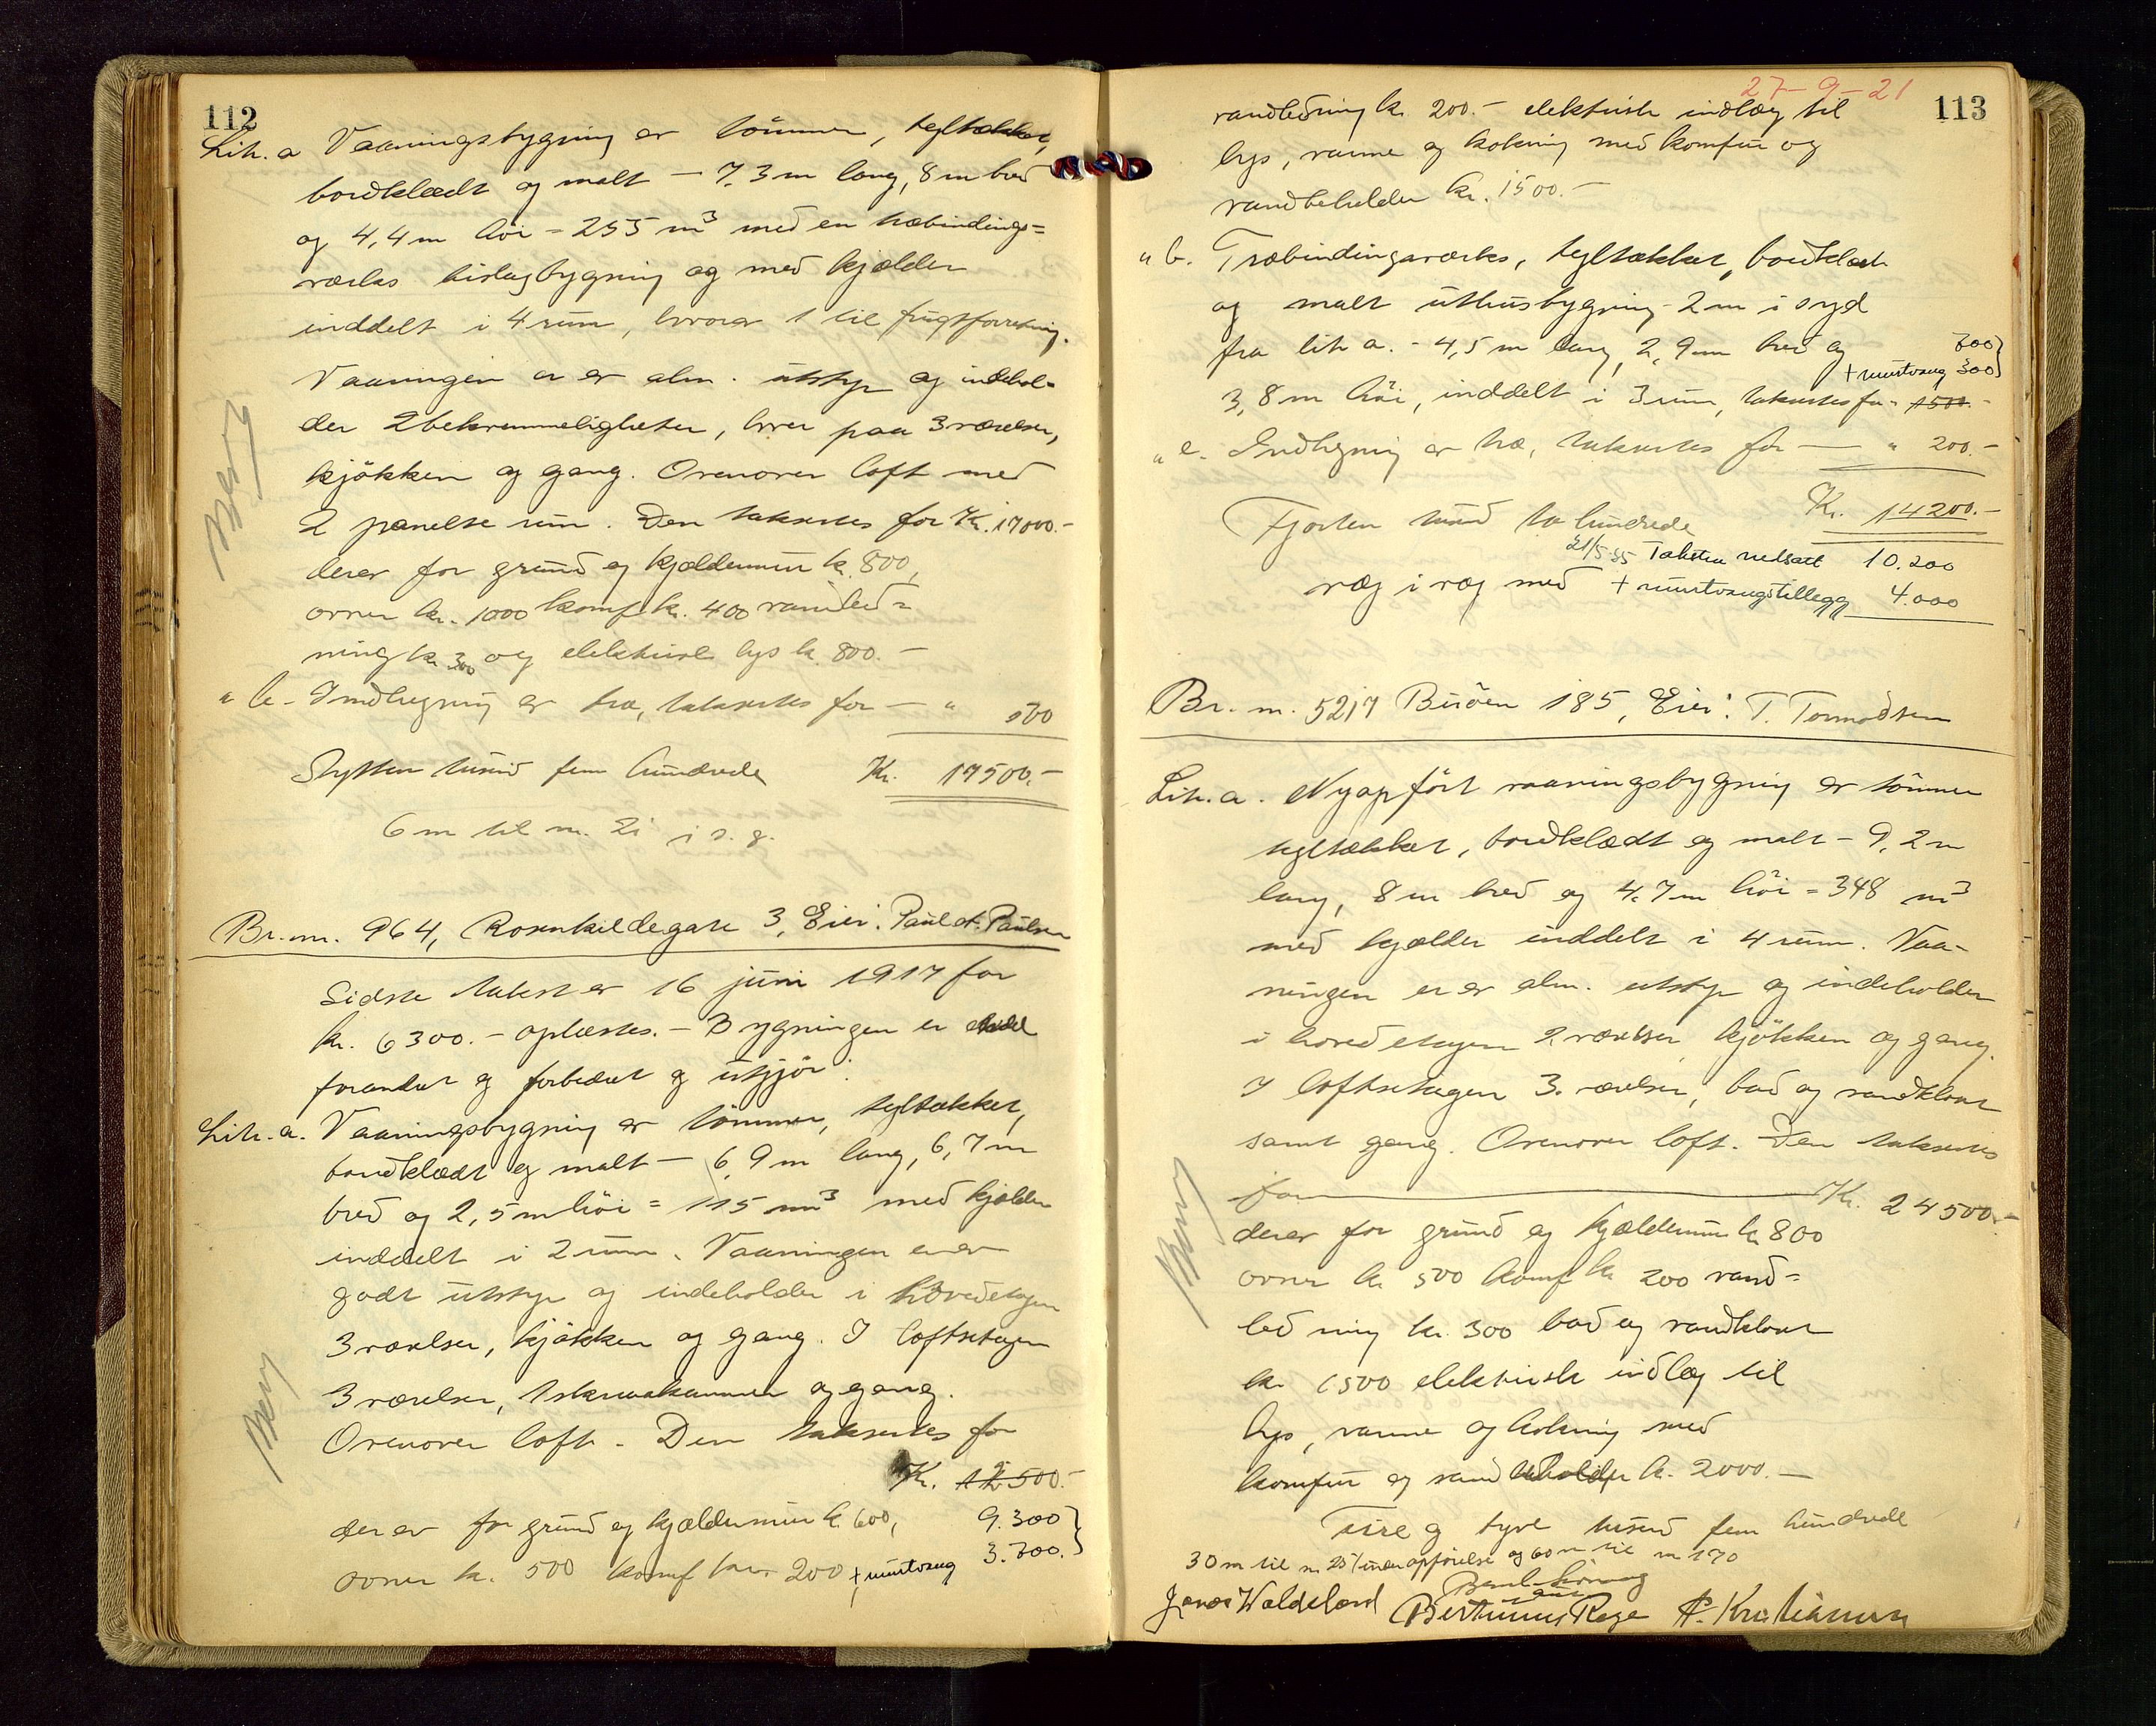 112
Lit. a Vaaningsbygning av tömmer, tegltækket,
bordklædt og malt - 7,3 m lang, 8 m bred
og 4,4 m höi = 255 m³ med en træbindings=
værks bislagbygning og med kjelder
inddelt i 4 rum, hvorav 1 til frugtforretning.
Vaaningen er av alm. utstyr og indehol-
der 2 bekvemmeligheter, hver paa 3 værelser,
kjökken og gang. Ovenover loft med
2 panelte rum. Den takseres for Kr. 17000.-
derav for grund og kjeldermur kr. 800,
ovner kr. 1000 komf. kr. 400 vandled=
ning kr. 300 og elektrisk lys kr. 800.-
" b- Indhegning av træ, takseres for - " 500
Sytten tusind fem hundrede Kr. 17500.-
6 m til nr. 21 i s. g.
Br. nr. 964, Rosenkildegate 3, Eier: Paul A. Paulsen
Sidste takst av 16 juni 1917 for
kr. 6300.- oplæstes. - Bygningen er
forandret og forbedret og utgjör:
Lit. a. Vaaningsbygning av tömmer, tegltækket,
bordklædt og malt - 6,9 m lang, 6,7 m
bred og 2,5 m höi = 115 m³ med kjelder
inddelt i 2 rum. Vaaningen er av
godt utstyr og indeholder i hovedetagen
3 værelser, kjökken og gang. I loftsetagen
3 værelser, 1 skraakammer og gang.
Ovenover loft. Den takseres for
Kr. 12500.-
derav for grund og kjeldermur kr. 600, 9.300
ovner kr. 500 komf kr. 200 + murtvang 3.700.
27-9-21
113
vandledning kr. 200.- elektrisk indlæg til
lys, varme og kokning med komfur og
vandbeholder kr. 1500.-
" b. Træbindingsverks, tegltækket, bordklædt
og malt uthusbygning - 2 m i syd
fra lit a. - 4,5 m lang, 2,9 m bred og 700
+ murtvang 300
3,8 m höi, inddelt i 3 rum, takseres for " 1500.-
" c. Indhegning av træ, takseres for - " 200.-
Fjorten tusind to hundrede Kr. 14200.-
21/5-35 Taksten nedsatt 10.200
væg i væg med + murtvangstillegg 4.000
Br. nr. 5217 Buöen 185, Eier: T. Tormodsen
Lit. a. Nyopfört vaaningsbygning av tömmer
tegltækket, bordklædt og malt - 9,2 m
lang, 8 m bred og 4,7 m höi = 348 m³
med kjelder inddelt i 4 rum. Vaa-
ningen er av alm. utstyr og indeholder
i hovedetagen 2 værelser kjökken og gang.
I loftsetagen 3 værelser, bad og vandklosæt
samt gang. Ovenover loft. Den takseres
for Kr. 24500.-
derav for grund og kjeldermur kr. 800
ovner kr. 500 komf kr. 200 vand=
ledning kr. 300 bad og vandklosæt
kr. 1500 elektrisk indlæg til
lys, varme og kokning med
komfur og vandbeholder kr. 2000.-
Fire og tyve tusind fem hundrede
30 m til nr 25 / under opförelse og 60 m til nr 170
Jonas Waldeland Bertinius Rage P. Kristiansen